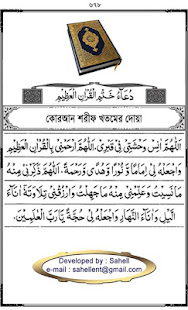 ٦٢٨
دُعَاءُ خَتْمِ الْقُرْاٰنِ الْعَظِيْمِ
কোরআন শরীফ খতমের দোয়া
اَللّٰهُمَّ اٰنِسْ وَحْشَتِيْ فِيْ قَبْرِيْ، اَللّٰهُمَّ ارْحَمْنِيْ بِالْقُرْاٰنِ الْعَظِيْمِ
وَاجْعَلْهُ لِيْ اِمَامًا وَّ نُوْرًا وَّهُدًى وَّرَحْمَةً، اَللّٰهُمَّ ذَكِّرْنِيْ مِنْهُ
مَانَسِيْتُ وَعَلِّمْنِيْ مِنْهُ مَاجَهِلْتُ وَارْزُقْنِيْ تِلَاوَتَهٗ اٰنَآءَ
الَّيْلِ وَاٰنَآءَ النَّهَارِ وَاجْعَلْهُ لِيْ حُجَّةً يَّارَبَّ الْعٰلَمِيْنَ.
Developed by : Sahell
e-mail : sahellent@gmail.com